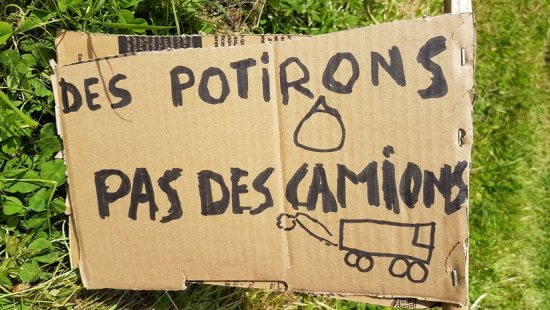 DES POTiRONS
PAS DES CAMiONS